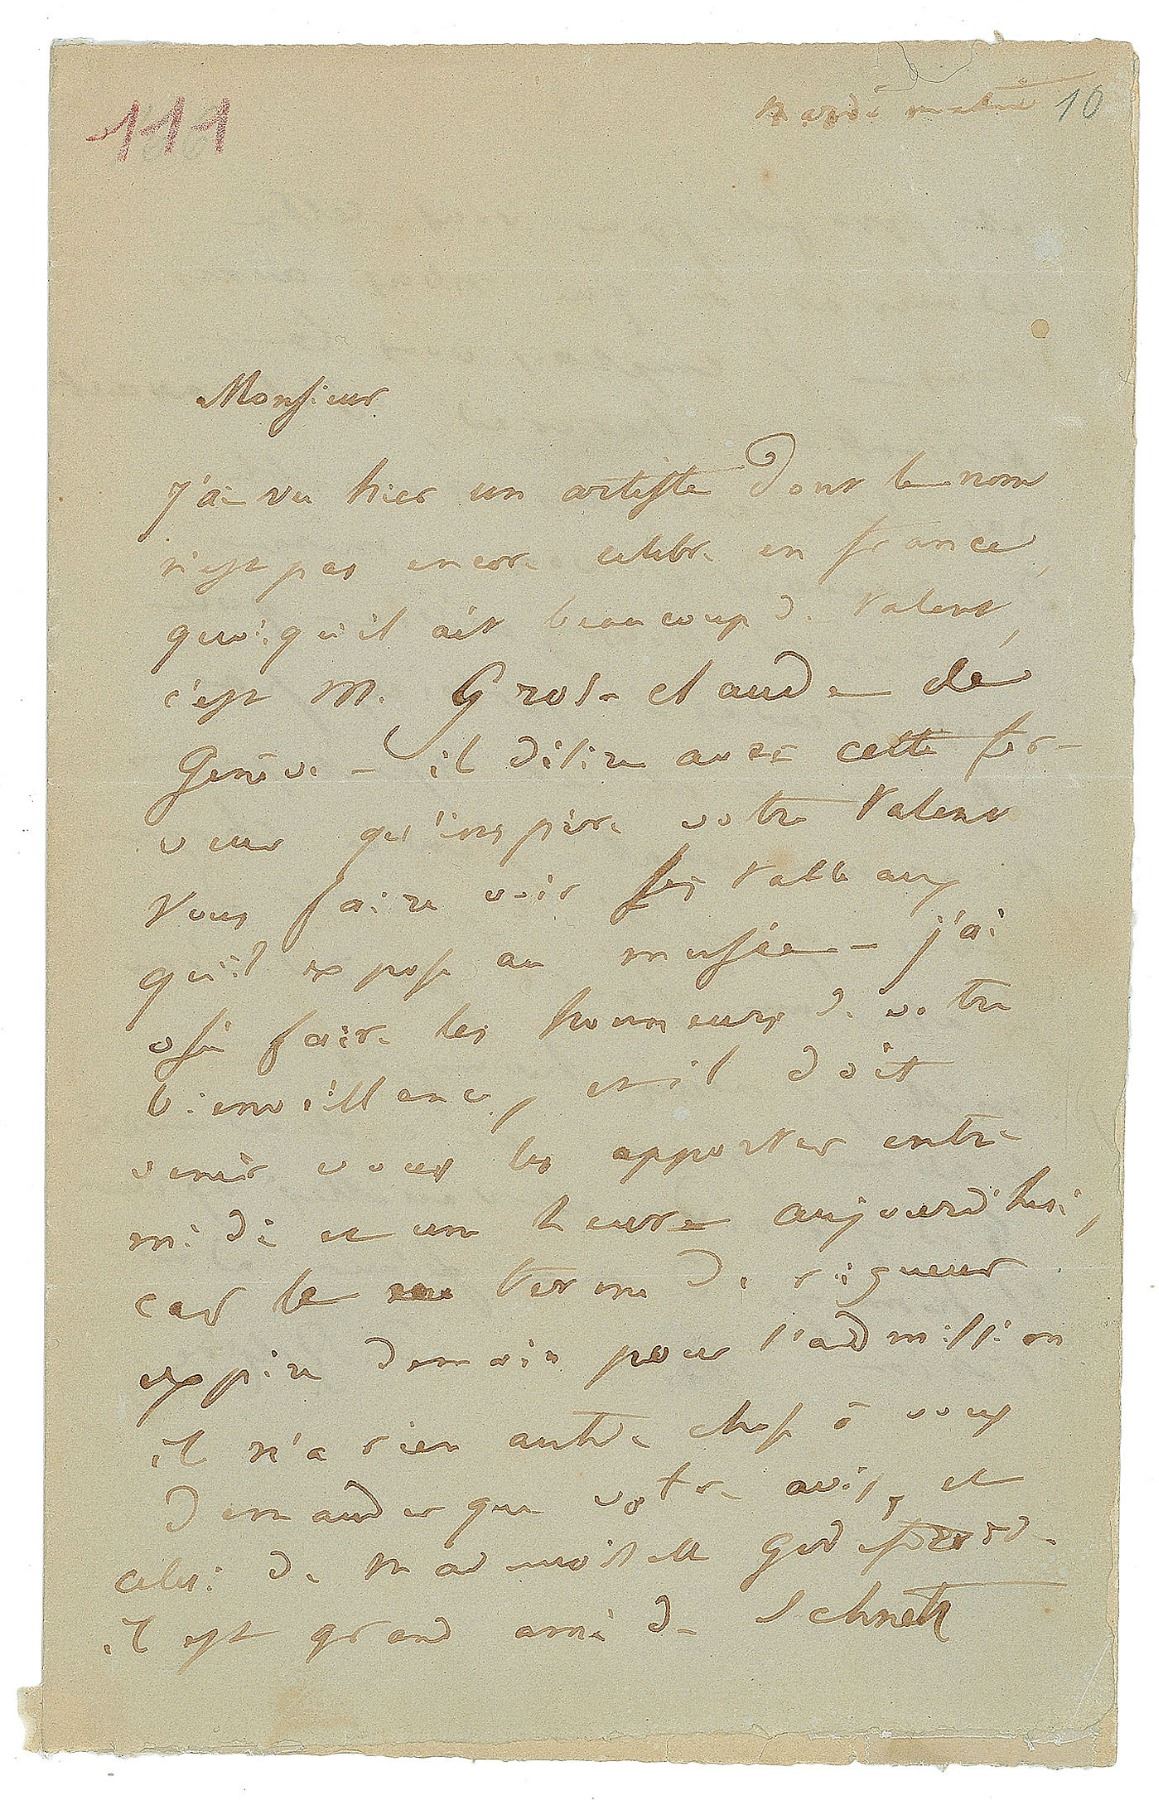 111
mardi matin 10
Monsieur
j'ai vu hier un artiste dont le nom
n'est pas encore celebre en france,
quoiqu'il ait beaucoup de talent,
c'est M. Grosclaude de
Genève - il désire avec cette fer-
veur qu'inspire votre talent
vous faire voir ses tableaux
qu'il expose au musée - j'ai
osé faire les honneurs de votre
bienveillance, et il doit
venir vous les apporter entre
midi et une heure aujourd'hui,
car le terme de rigueur
expire demain pour l'admission
il n'a rien autre chose à vous
demander que votre avis, et
celui de mademoiselle Godefroid.
il est grand ami de Schnetz